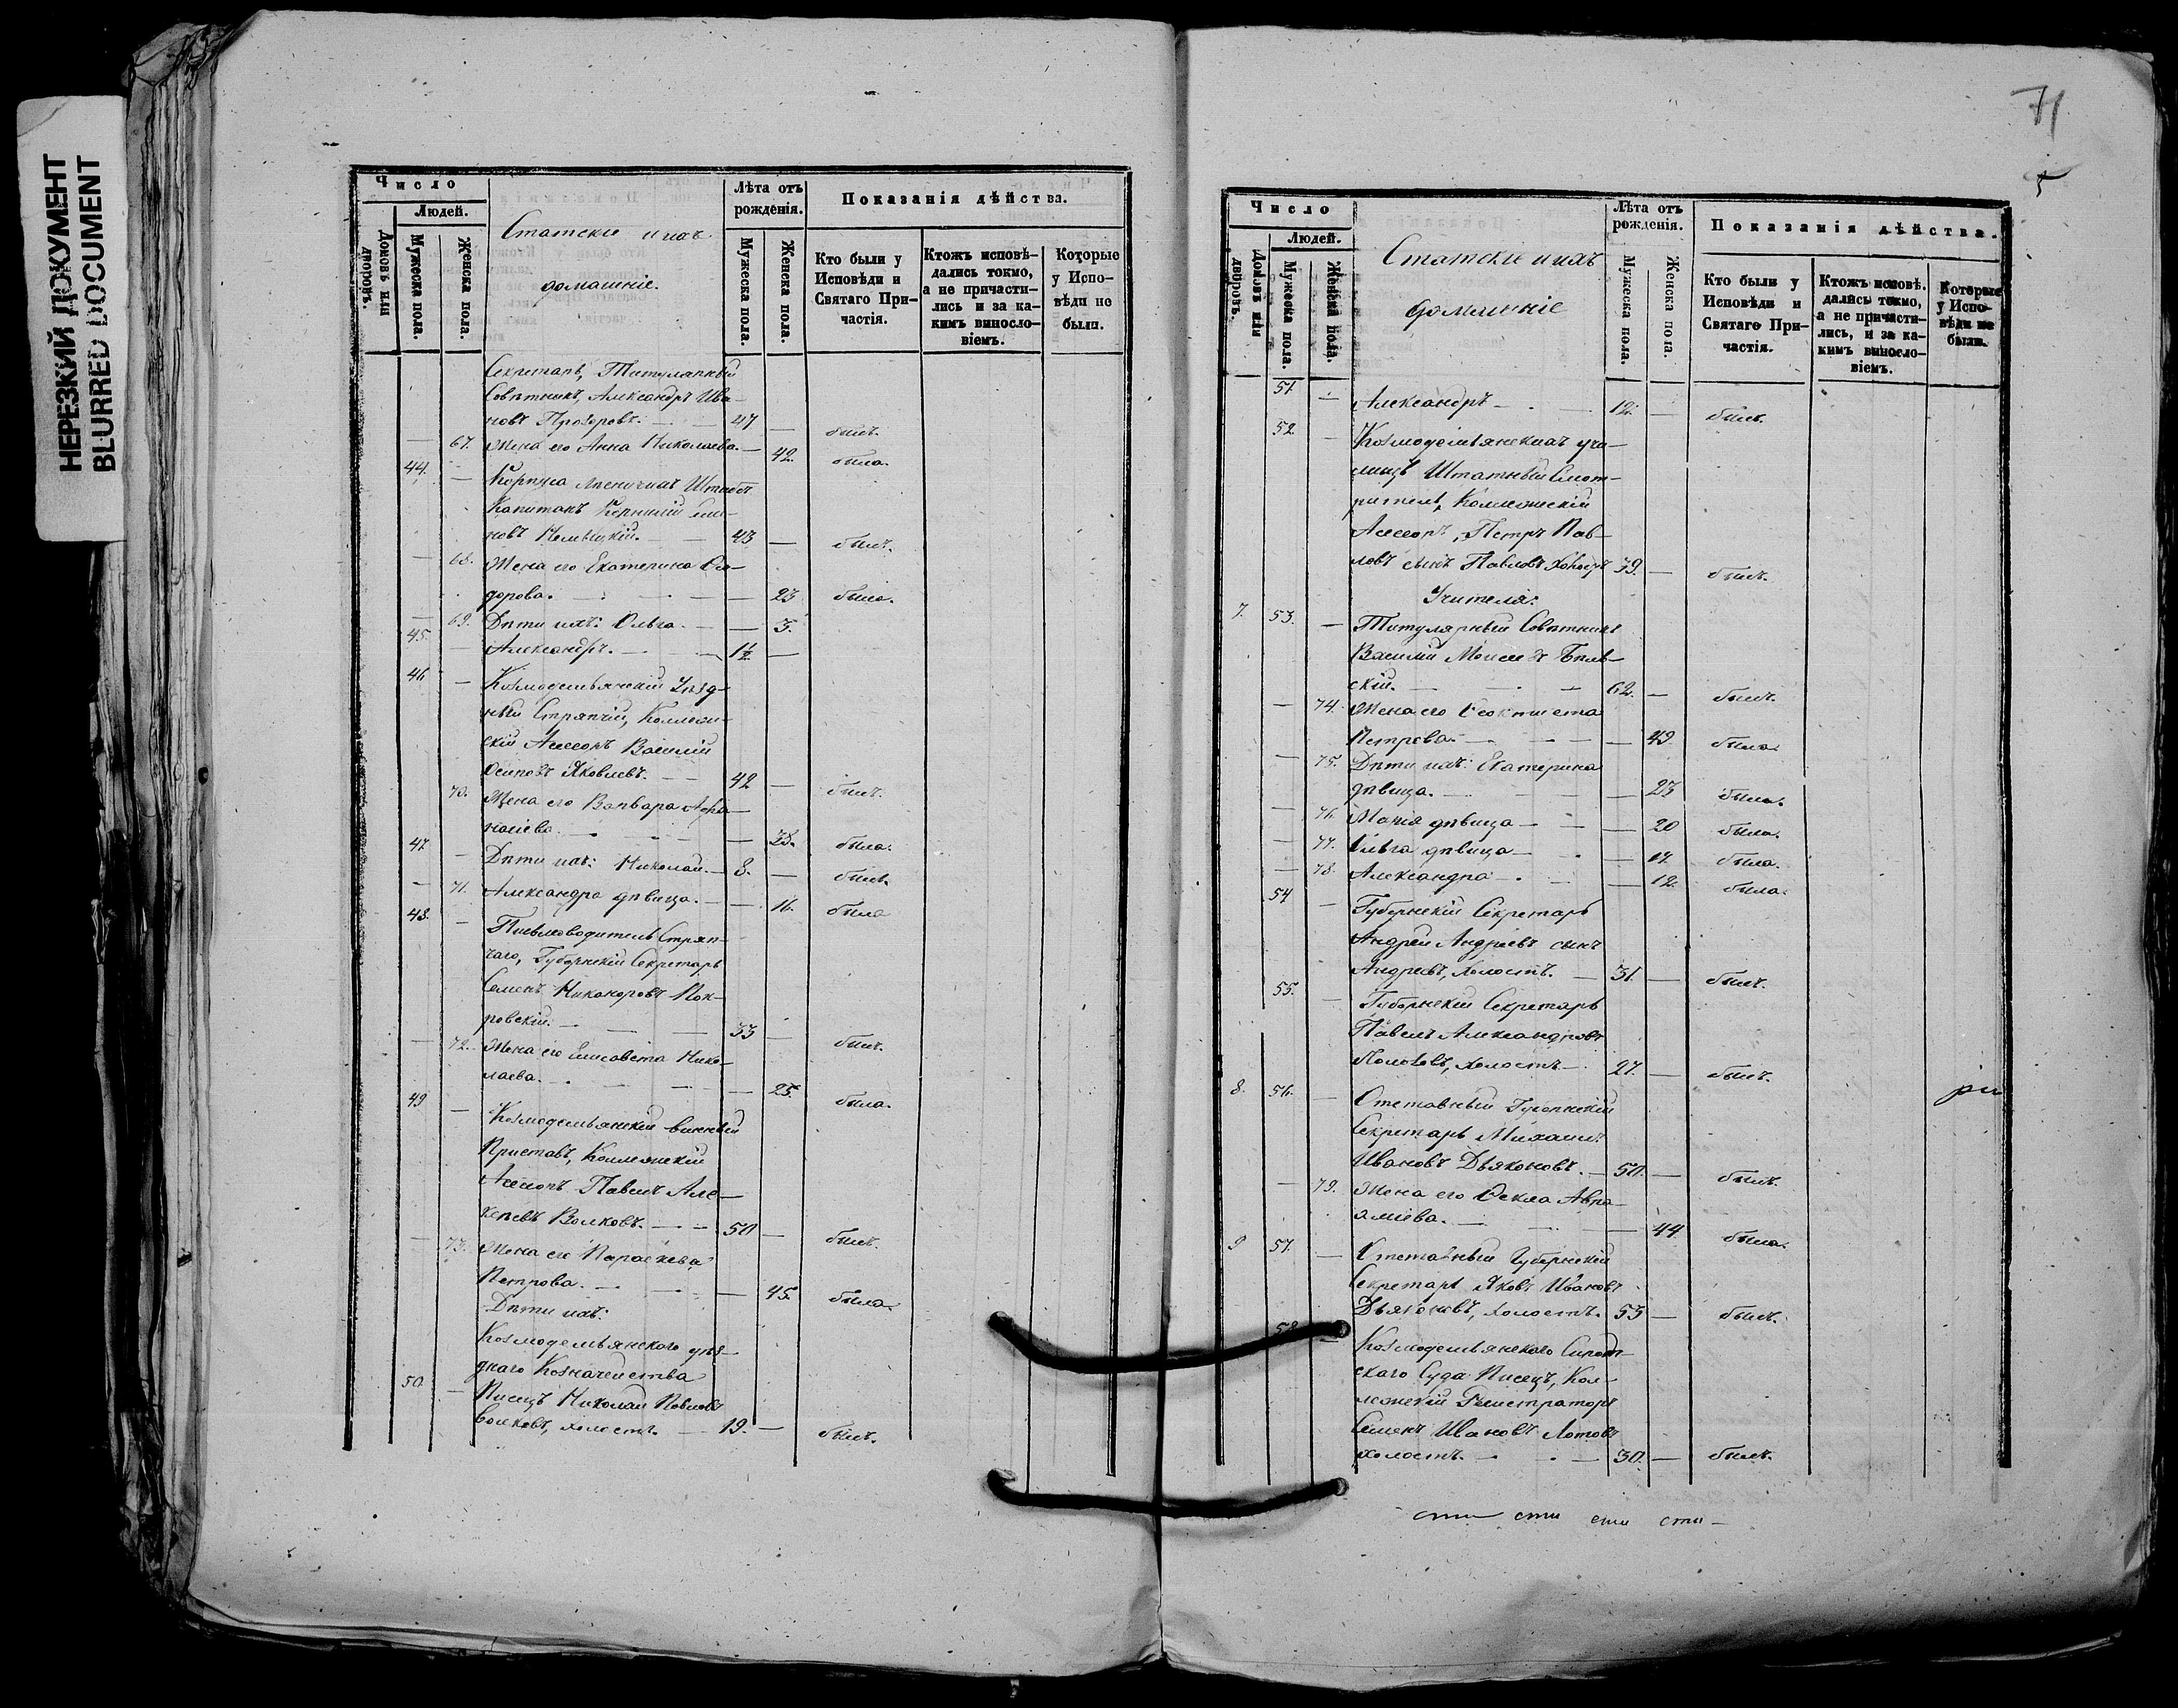 НЕРЕЗКИЙ ДОКУМЕНТ
BLURRED DOCUMENT
Число
Людей.
Домовъ или дворовъ.
Мужеска пола.
Женска пола.
Статскіе и ихъ
домашніе.
Лѣта отъ рожденія.
Мужеска пола.
Женска пола.
Показанія дѣйства.
Кто были у Исповѣди и Святаго Причастія.
Ктожъ исповѣдались токмо, а не причастились и за какимъ винословіемъ.
Которые у Исповѣди не были.
Секретарь, Титулярный
Совѣтникъ, Александръ Ива-
новъ Прозоровъ. 47 — былъ.
— 67. Жена его Анна Николаева. — 42. была.
44. — Корпуса лѣсничихъ Штабсъ
Капитанъ
новъ 43 — былъ.
— 68. Жена его Екатерина
дорова. — 23 была.
— 69. Дѣти ихъ: Ольга. — 3.
45. — Александръ. — 1½ —
46 — Козмодемьянскій Уѣзд-
ный Стряпчій, Коллеж-
скій Ассесоръ Василій
Осиповъ Яковлевъ. 42 — былъ.
70. Жена его Варвара Афа-
насіева. — 28. была.
47. — Дѣти ихъ: Николай. — 8. — былъ.
— 71. Александра дѣвица. — 11. была
48. — Письмоводитель Стряп-
чаго, Губернскій Секретарь
Семенъ Никаноровъ Пок-
ровскій. — 33 — былъ.
— 72. Жена его Елисавета Нико-
лаева. — 25. была.
49 — Козмодемьянскій винный
Приставъ, Коллежскій
Ассесоръ Павелъ Але-
ксѣевъ Волковъ. — 50 — былъ.
— 73. Жена его Параскева
Петрова. — 45. была.
Дѣти ихъ:
Козмодемьянскаго уѣз-
днаго Казначейства
50. — Писецъ Николай Павловъ
Волковъ, холостъ. — 19. — былъ.
71
5
Число
Людей.
Домовъ или дворовъ.
Мужеска пола.
Женска пола.
Статскіе и ихъ
домашніе
Лѣта отъ рожденія.
Мужеска пола.
Женска пола.
Показанія дѣйства.
Кто были у Исповѣди и Святаго Причастія.
Ктожъ исповѣдались токмо, а не причастились, и за какимъ винословіемъ.
Которые у Исповѣди не были.
51 — Александръ — 12. — былъ.
52 — Козмодемьянскихъ учи-
лищъ Штатный Смот-
ритель, Коллежскій
Ассесоръ, Петръ Пав-
ловъ сынъ Павловъ 39. — былъ.
Учителя:
7. 53. — Титулярный Совѣтникъ
Василій Моисеевъ Бѣль-
скій. — 62. — былъ.
— 74. Жена его Феоктиста
Петрова. — 49 была.
— 75. Дѣти ихъ: Екатерина
дѣвица. — 23 была.
— 76. Марія дѣвица — 20 была.
— 77. Ольга дѣвица — 17. была.
— 78. Александра — 12. была.
54 — Губернскій Секретарь
Андрей Андреевъ сынъ
Андреевъ, холостъ. — 31. — былъ.
55. — Губернскій Секретарь
Павелъ Александровъ
Полозовъ, холостъ — 27. — былъ.
8. 56. — Отставный Губернскій
Секретарь Михаилъ
Ивановъ Дьяконовъ. — 50. — былъ.
— 79. Жена его Фекла Авра-
аміева. — 44. была.
9 57. — Отставный Губернскій
Секретарь Яковъ Ивановъ
Дьяконовъ, холостъ. 53 — былъ.
58 — Козмодемьянскаго Сирот-
скаго Суда Писецъ, Кол-
лежскій Регистраторъ
Семенъ Ивановъ Лотовъ
холостъ. — 30. — былъ.